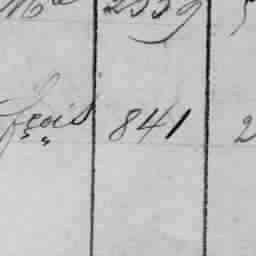 2339
fçois 841 2